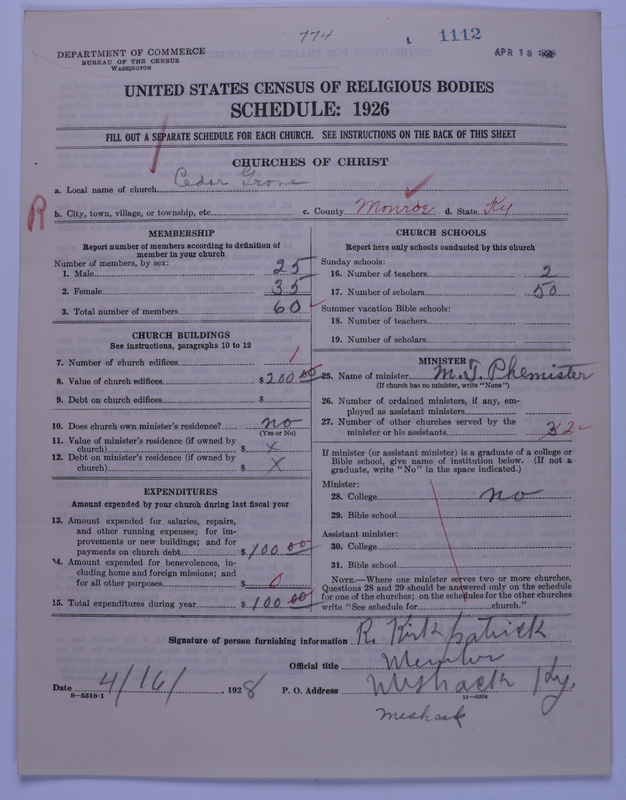 774
1112
APR 18 1928
DEPARTMENT OF COMMERCE
BUREAU OF THE CENSUS
WASHINGTON
UNITED STATES CENSUS OF RELIGIOUS BODIES
SCHEDULE: 1926
FILL OUT A SEPARATE SCHEDULE FOR EACH CHURCH. SEE INSTRUCTIONS ON THE BACK OF THIS SHEET
CHURCHES OF CHRIST
a. Local name of church Cedar Grove
R
b. City, town, village, or township, etc. c. County Monroe d. State Ky
MEMBERSHIP
Report number of members according to definition of
member in your church
Number of members, by sex:
1. Male 25
2. Female 35
3. Total number of members 60
CHURCH BUILDINGS
See instructions, paragraphs 10 to 12
7. Number of church edifices 1
8. Value of church edifices $200 00
9. Debt on church edifices $
10. Does church own minister's residence? no
(Yes or No)
11. Value of minister's residence (if owned by
church) $ x
12. Debt on minister's residence (if owned by
church) $ x
EXPENDITURES
Amount expended by your church during last fiscal year
13. Amount expended for salaries, repairs,
and other running expenses; for im-
provements or new buildings; and for
payments on church debt $100.00
14. Amount expended for benevolences, in-
cluding home and foreign missions; and
for all other purposes $ 0
15. Total expenditures during year $100 00
CHURCH SCHOOLS
Report here only schools conducted by this church
Sunday schools:
16. Number of teachers 2
17. Number of scholars 50
Summer vacation Bible schools:
18. Number of teachers
19. Number of scholars
MINISTER
25. Name of minister M. T. Phemister
(If church has no minister, write "None")
26. Number of ordained ministers, if any, em-
ployed as assistant ministers
27. Number of other churches served by the
minister or his assistants 3 2
If minister (or assistant minister) is a graduate of a college or
Bible school, give name of institution below. (If not a
graduate, write "No" in the space indicated.)
Minister:
28. College no
29. Bible school
Assistant minister:
30. College
31. Bible school
NOTE.—Where one minister serves two or more churches,
Questions 28 and 29 should be answered only on the schedule
for one of the churches; on the schedules for the other churches
write "See schedule for church."
Signature of person furnishing information R. Kirkpatrick
Official title Member
Date 4/16/, 1928 P. O. Address Meshack Ky.
8-5518-1 11-9204
Meshack